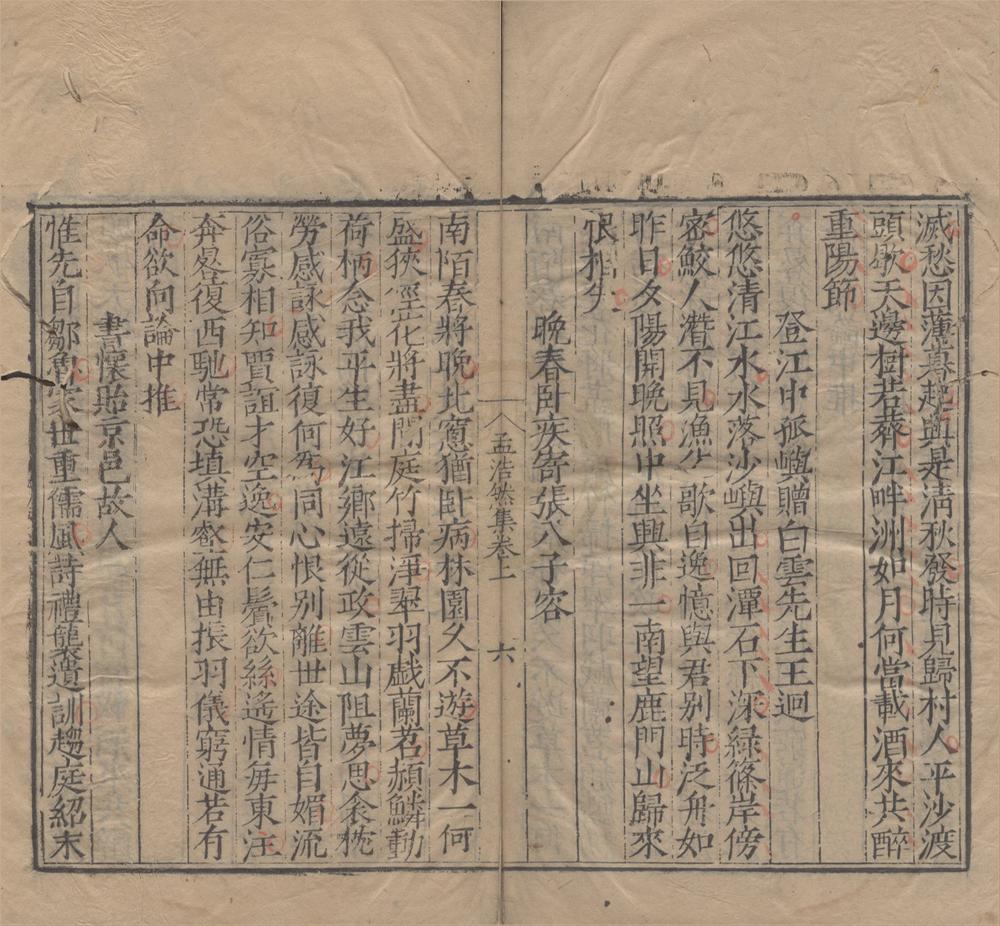 滅愁因薄暮起興是清秋發時見歸村人平沙渡
頭歇天邊樹若薺江畔洲如月何當載酒來共醉
重陽節
登江中孤嶼贈白雲先生王迴
悠悠清江水水落沙嶼出回潭石下深綠篠岸傍
密鮫人潛不見漁父歌自逸憶與君别時泛舟如
昨日夕陽開晚照中坐興非一南望鹿門山歸來
恨相失
晚春卧疾寄張八子容
孟浩然集卷上 六
南陌春將晚北窻猶卧病林園久不遊草木一何
盛狹徑花將盡閒庭竹掃淨翠羽戯蘭苕頳鱗動
荷柄念我平生好江鄉遠從政雲山阻夢思衾枕
勞感詠感詠復何為同心恨别離世途皆自媚流
俗寡相知賈誼才空逸安仁鬢欲絲遙情每東注
奔晷復西馳常恐填溝壑無由振羽儀窮通若有
命欲向論中推
書懷貽京邑故人
惟先自鄒魯家世重儒風詩禮襲遺訓趨庭紹末